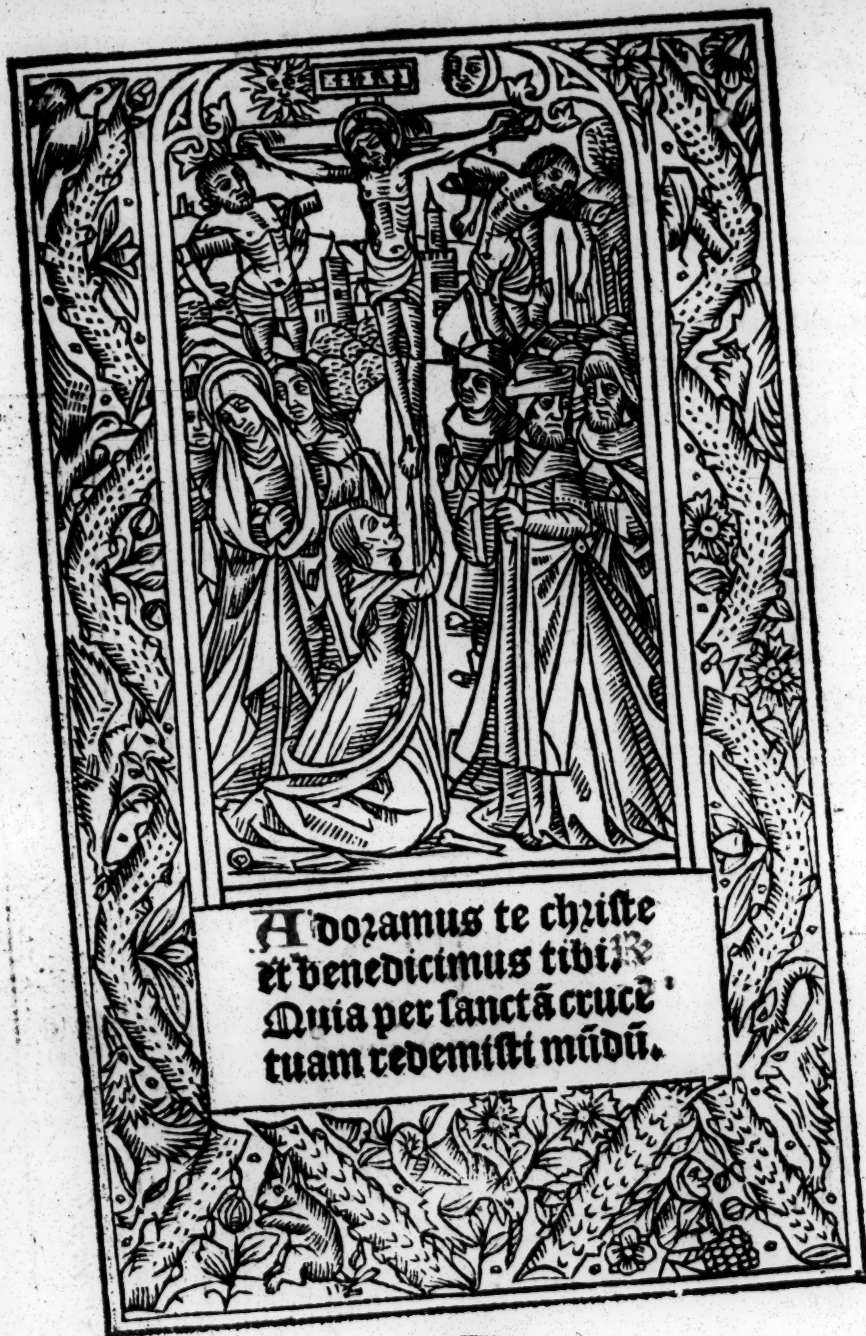 Adoramus te christe
et benedicimus tibi. R
Quia per sanctā crucē
tuam redemisti mūdū.